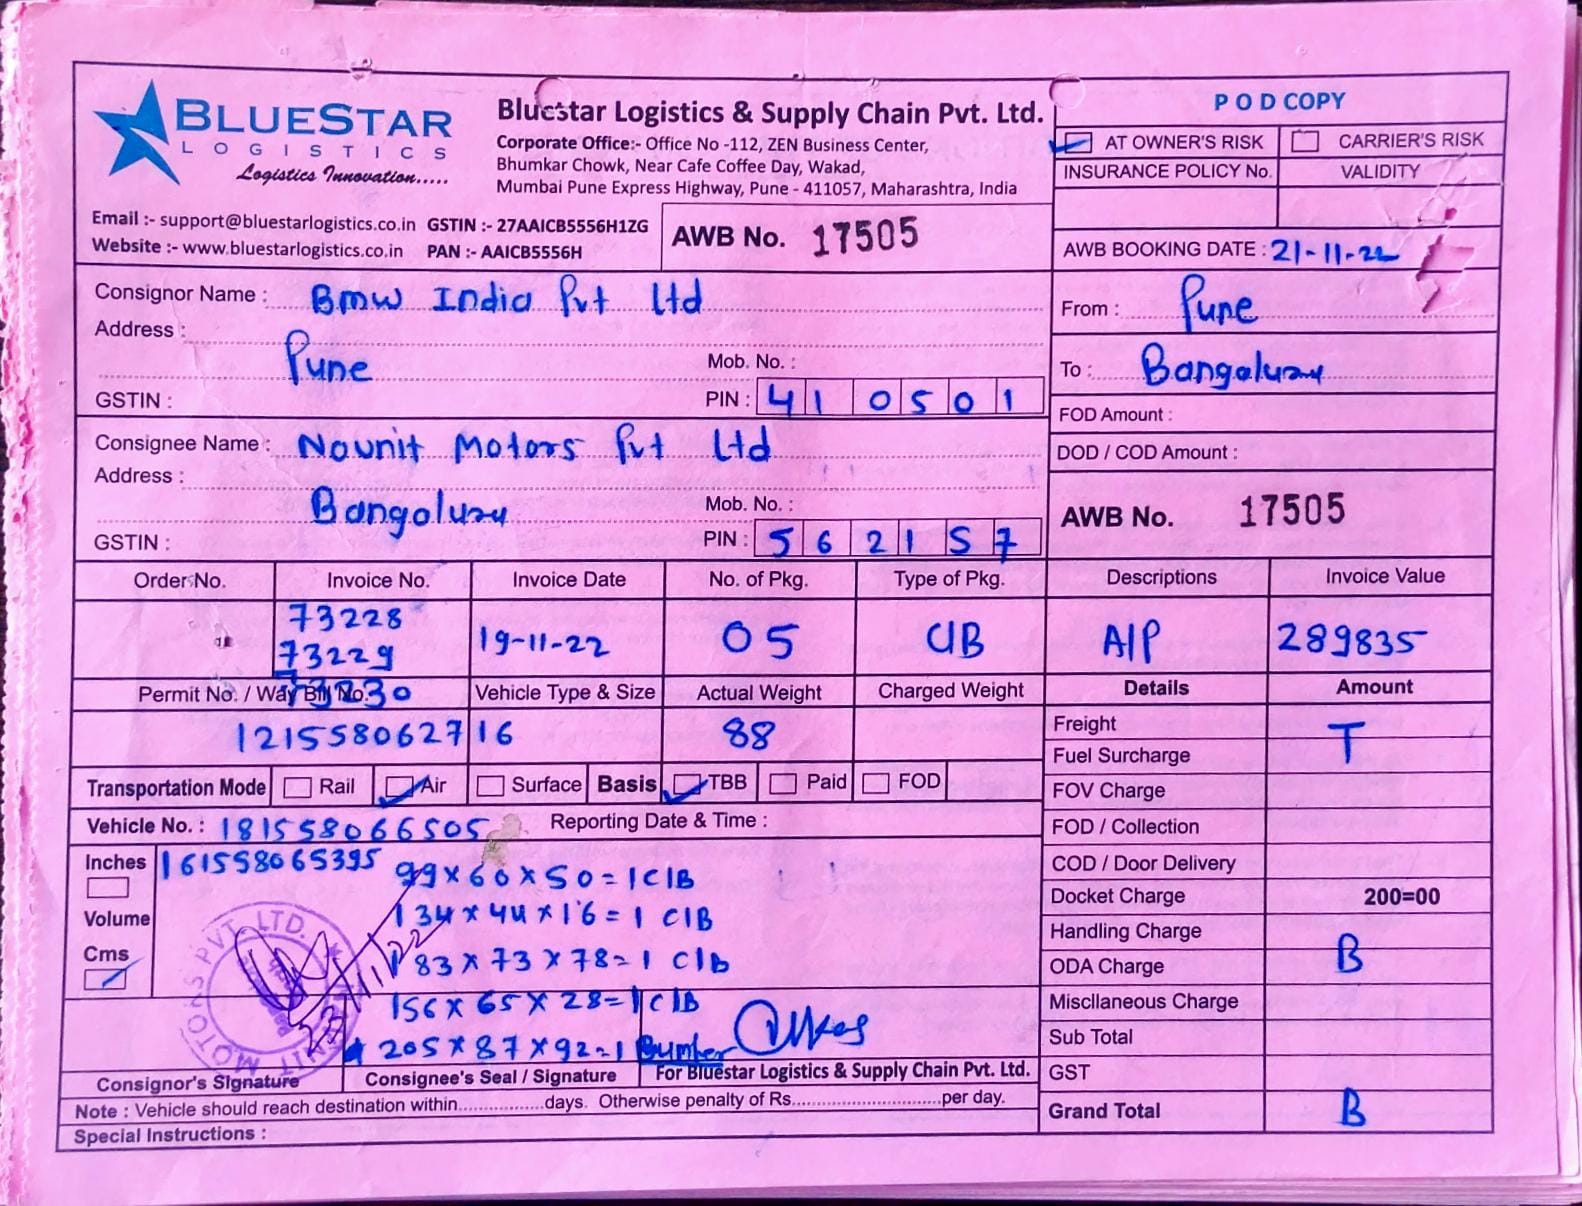 BLUESTAR
LOGISTICS
Logistics Innovation.....
Bluestar Logistics & Supply Chain Pvt. Ltd.
Corporate Office:- Office No -112, ZEN Business Center,
Bhumkar Chowk, Near Cafe Coffee Day, Wakad,
Mumbai Pune Express Highway, Pune - 411057, Maharashtra, India
Email :- support@bluestarlogistics.co.in GSTIN :- 27AAICB5556H1ZG
Website :- www.bluestarlogistics.co.in PAN :- AAICB5556H
AWB No. 17505
POD COPY
AT OWNER'S RISK CARRIER'S RISK
INSURANCE POLICY No. VALIDITY
AWB BOOKING DATE : 21-11-22
Consignor Name : Bmw India Pvt Ltd
Address :
Pune
Mob. No. :
GSTIN : PIN : 410501
From : Pune
To : Bangaluru
FOD Amount :
DOD / COD Amount :
Consignee Name : Nounit Motors Pvt Ltd
Address :
Bangaluru
Mob. No. :
GSTIN : PIN : 562157
AWB No. 17505
Order No. Invoice No. Invoice Date No. of Pkg. Type of Pkg. Descriptions Invoice Value
73228
73229 19-11-22 05 CIB A/P 289835
73230
Permit No. / Way Bill No. Vehicle Type & Size Actual Weight Charged Weight Details Amount
121558062716 88
Freight T
Fuel Surcharge
Transportation Mode Rail Air Surface Basis TBB Paid FOD
FOV Charge
Vehicle No. : 181558066505 Reporting Date & Time :
FOD / Collection
Inches 161558065395
99x60x50=1CIB
COD / Door Delivery
Docket Charge 200=00
Volume
134x44x16=1 CIB
Handling Charge
Cms
183x73x78=1 CIB
ODA Charge B
156x65x28=1CIB
Miscllaneous Charge
Sub Total
205x87x92=1 Bumber
MOTORS PVT. LTD.
23/11/22
Consignor's Signature Consignee's Seal / Signature For Bluestar Logistics & Supply Chain Pvt. Ltd.
GST
Note : Vehicle should reach destination within.................days. Otherwise penalty of Rs.............................per day.
Grand Total B
Special Instructions :